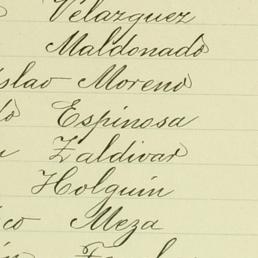 Velazquez
Maldonado
islao Moreno
do Espinosa
Zaldivar
Holguin
ico Meza